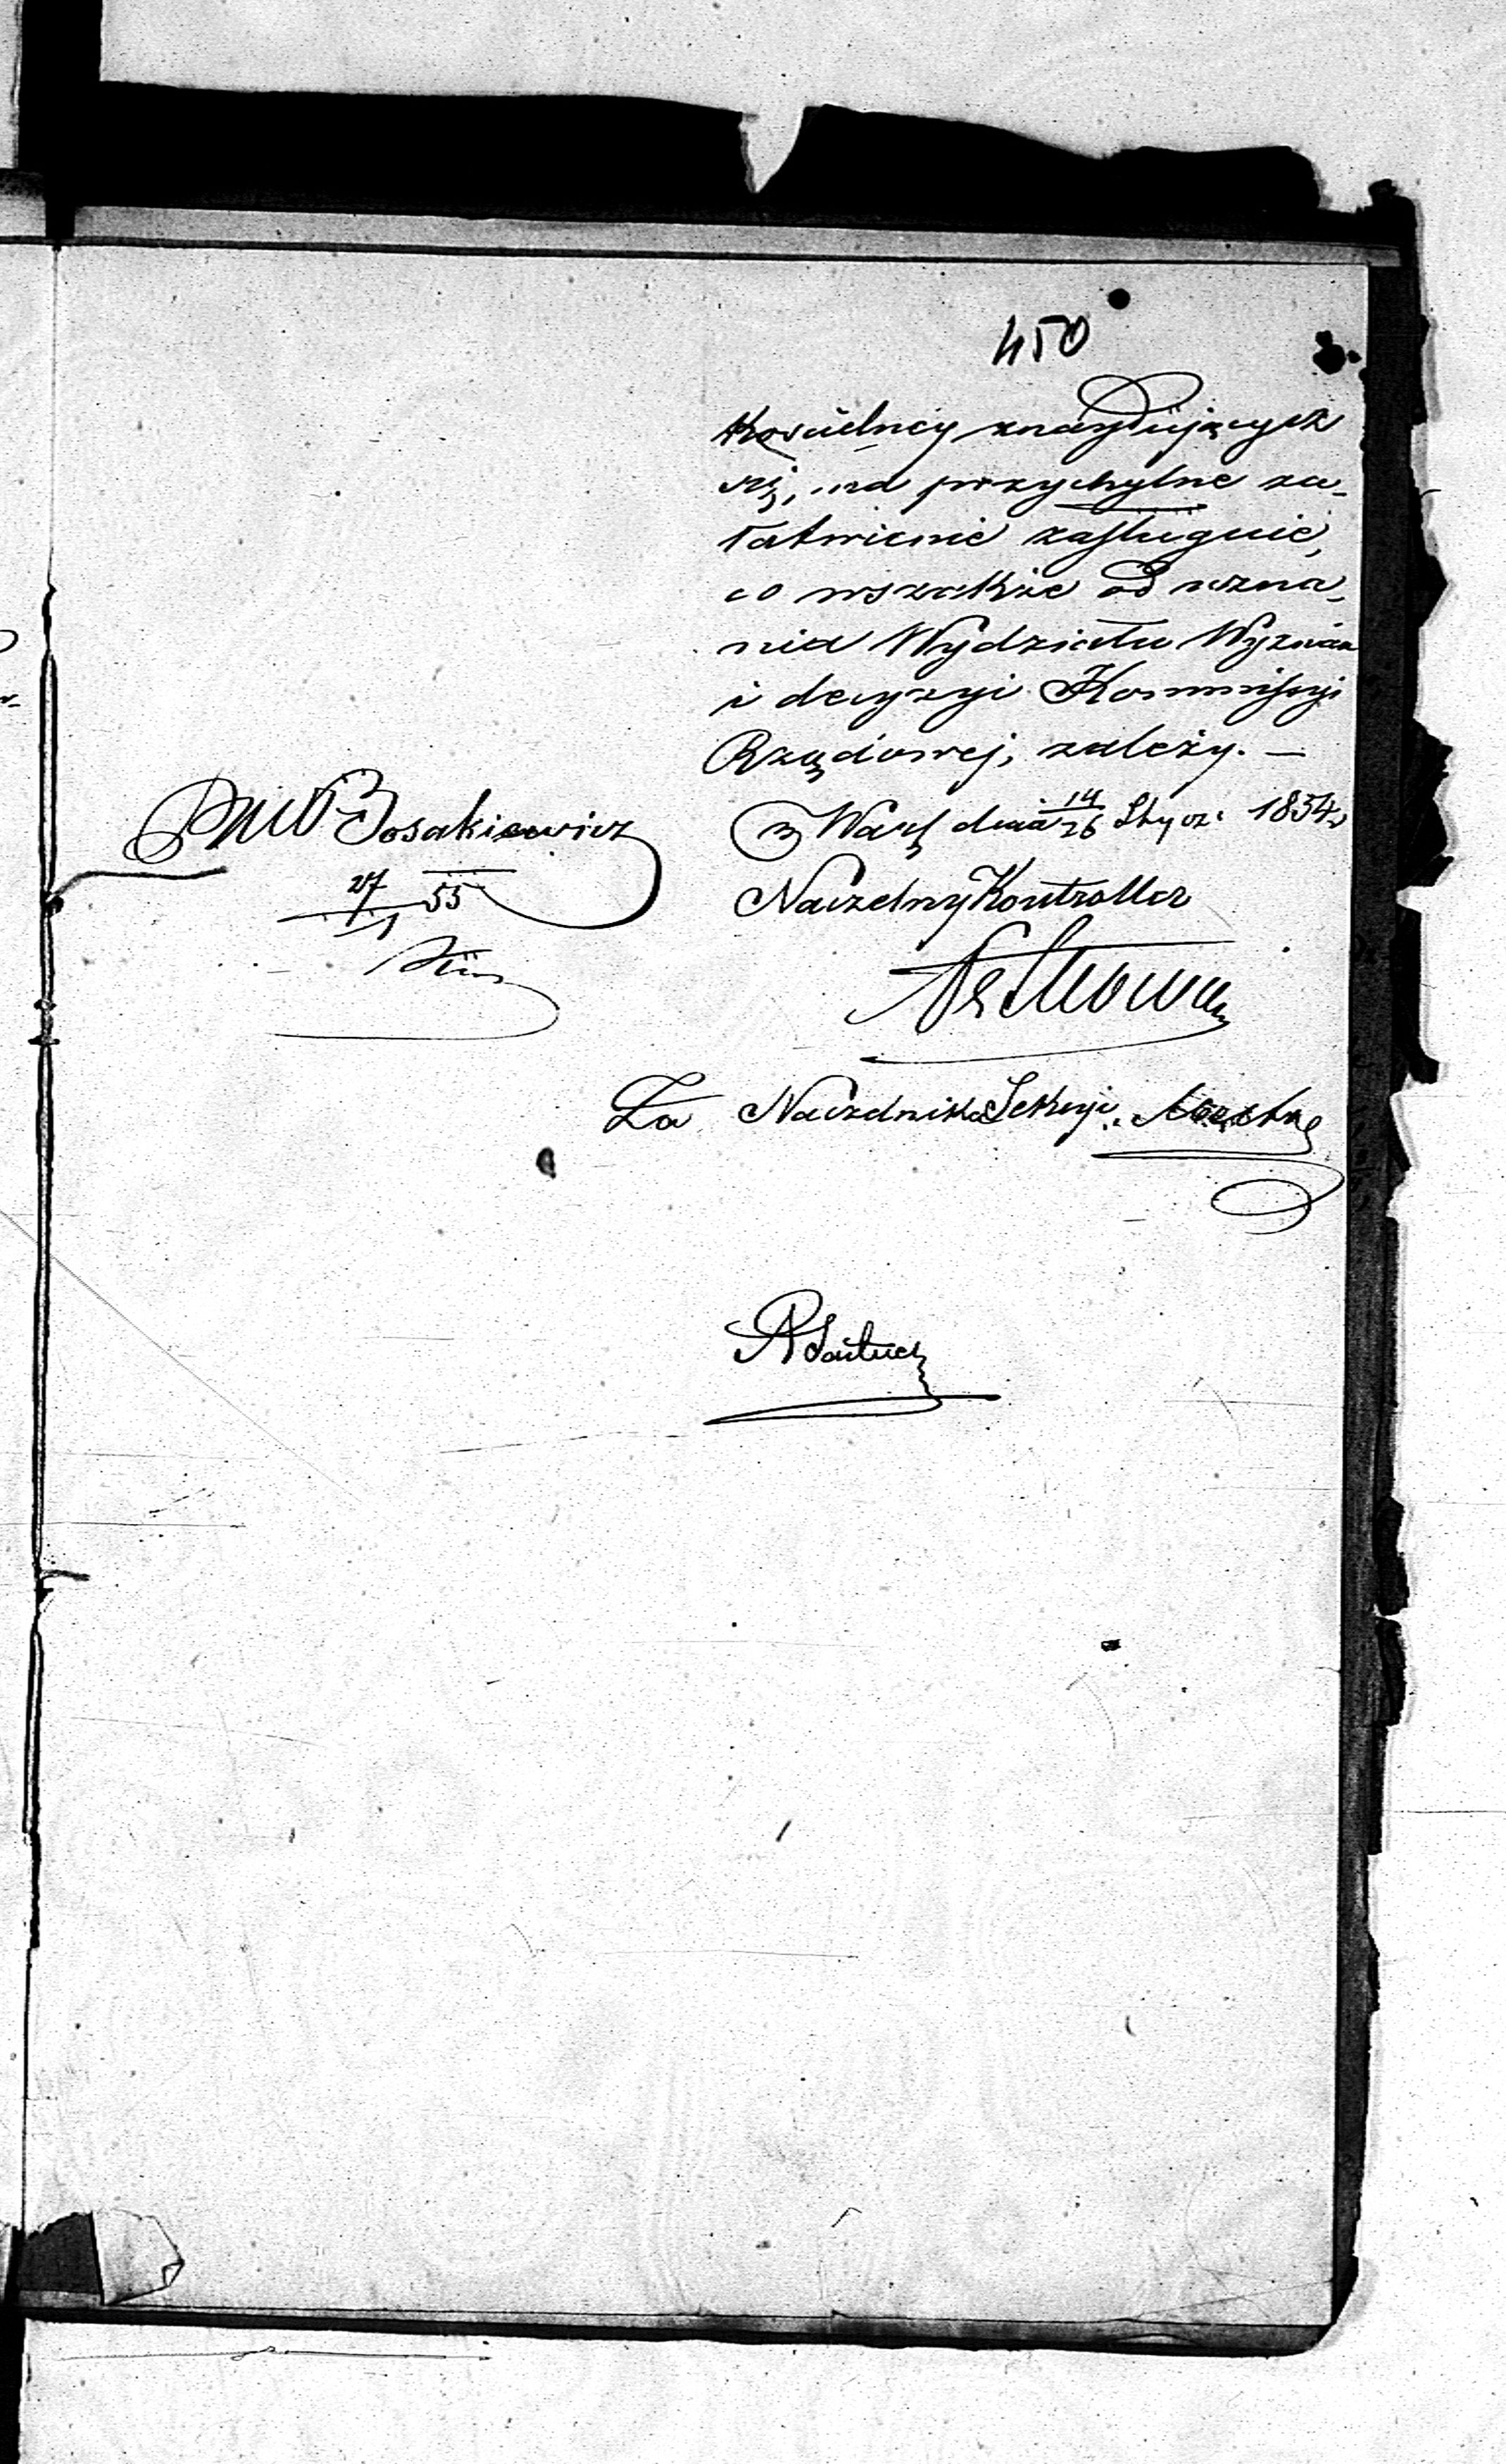 450
Kościelney znayduiących
się, na przychylne za-
łatwienie zasługuie,
co wszakże od uzna-
nia Wydziału Wyznań
i decyzyi Kommissyi
Rządowej, zależy. —
w Warsz dnia 14/26 Stycz: 1854 r
Naczelny Kontroller
Za Naczelnika Sekcyi
Bosakiewicz
27/1 55